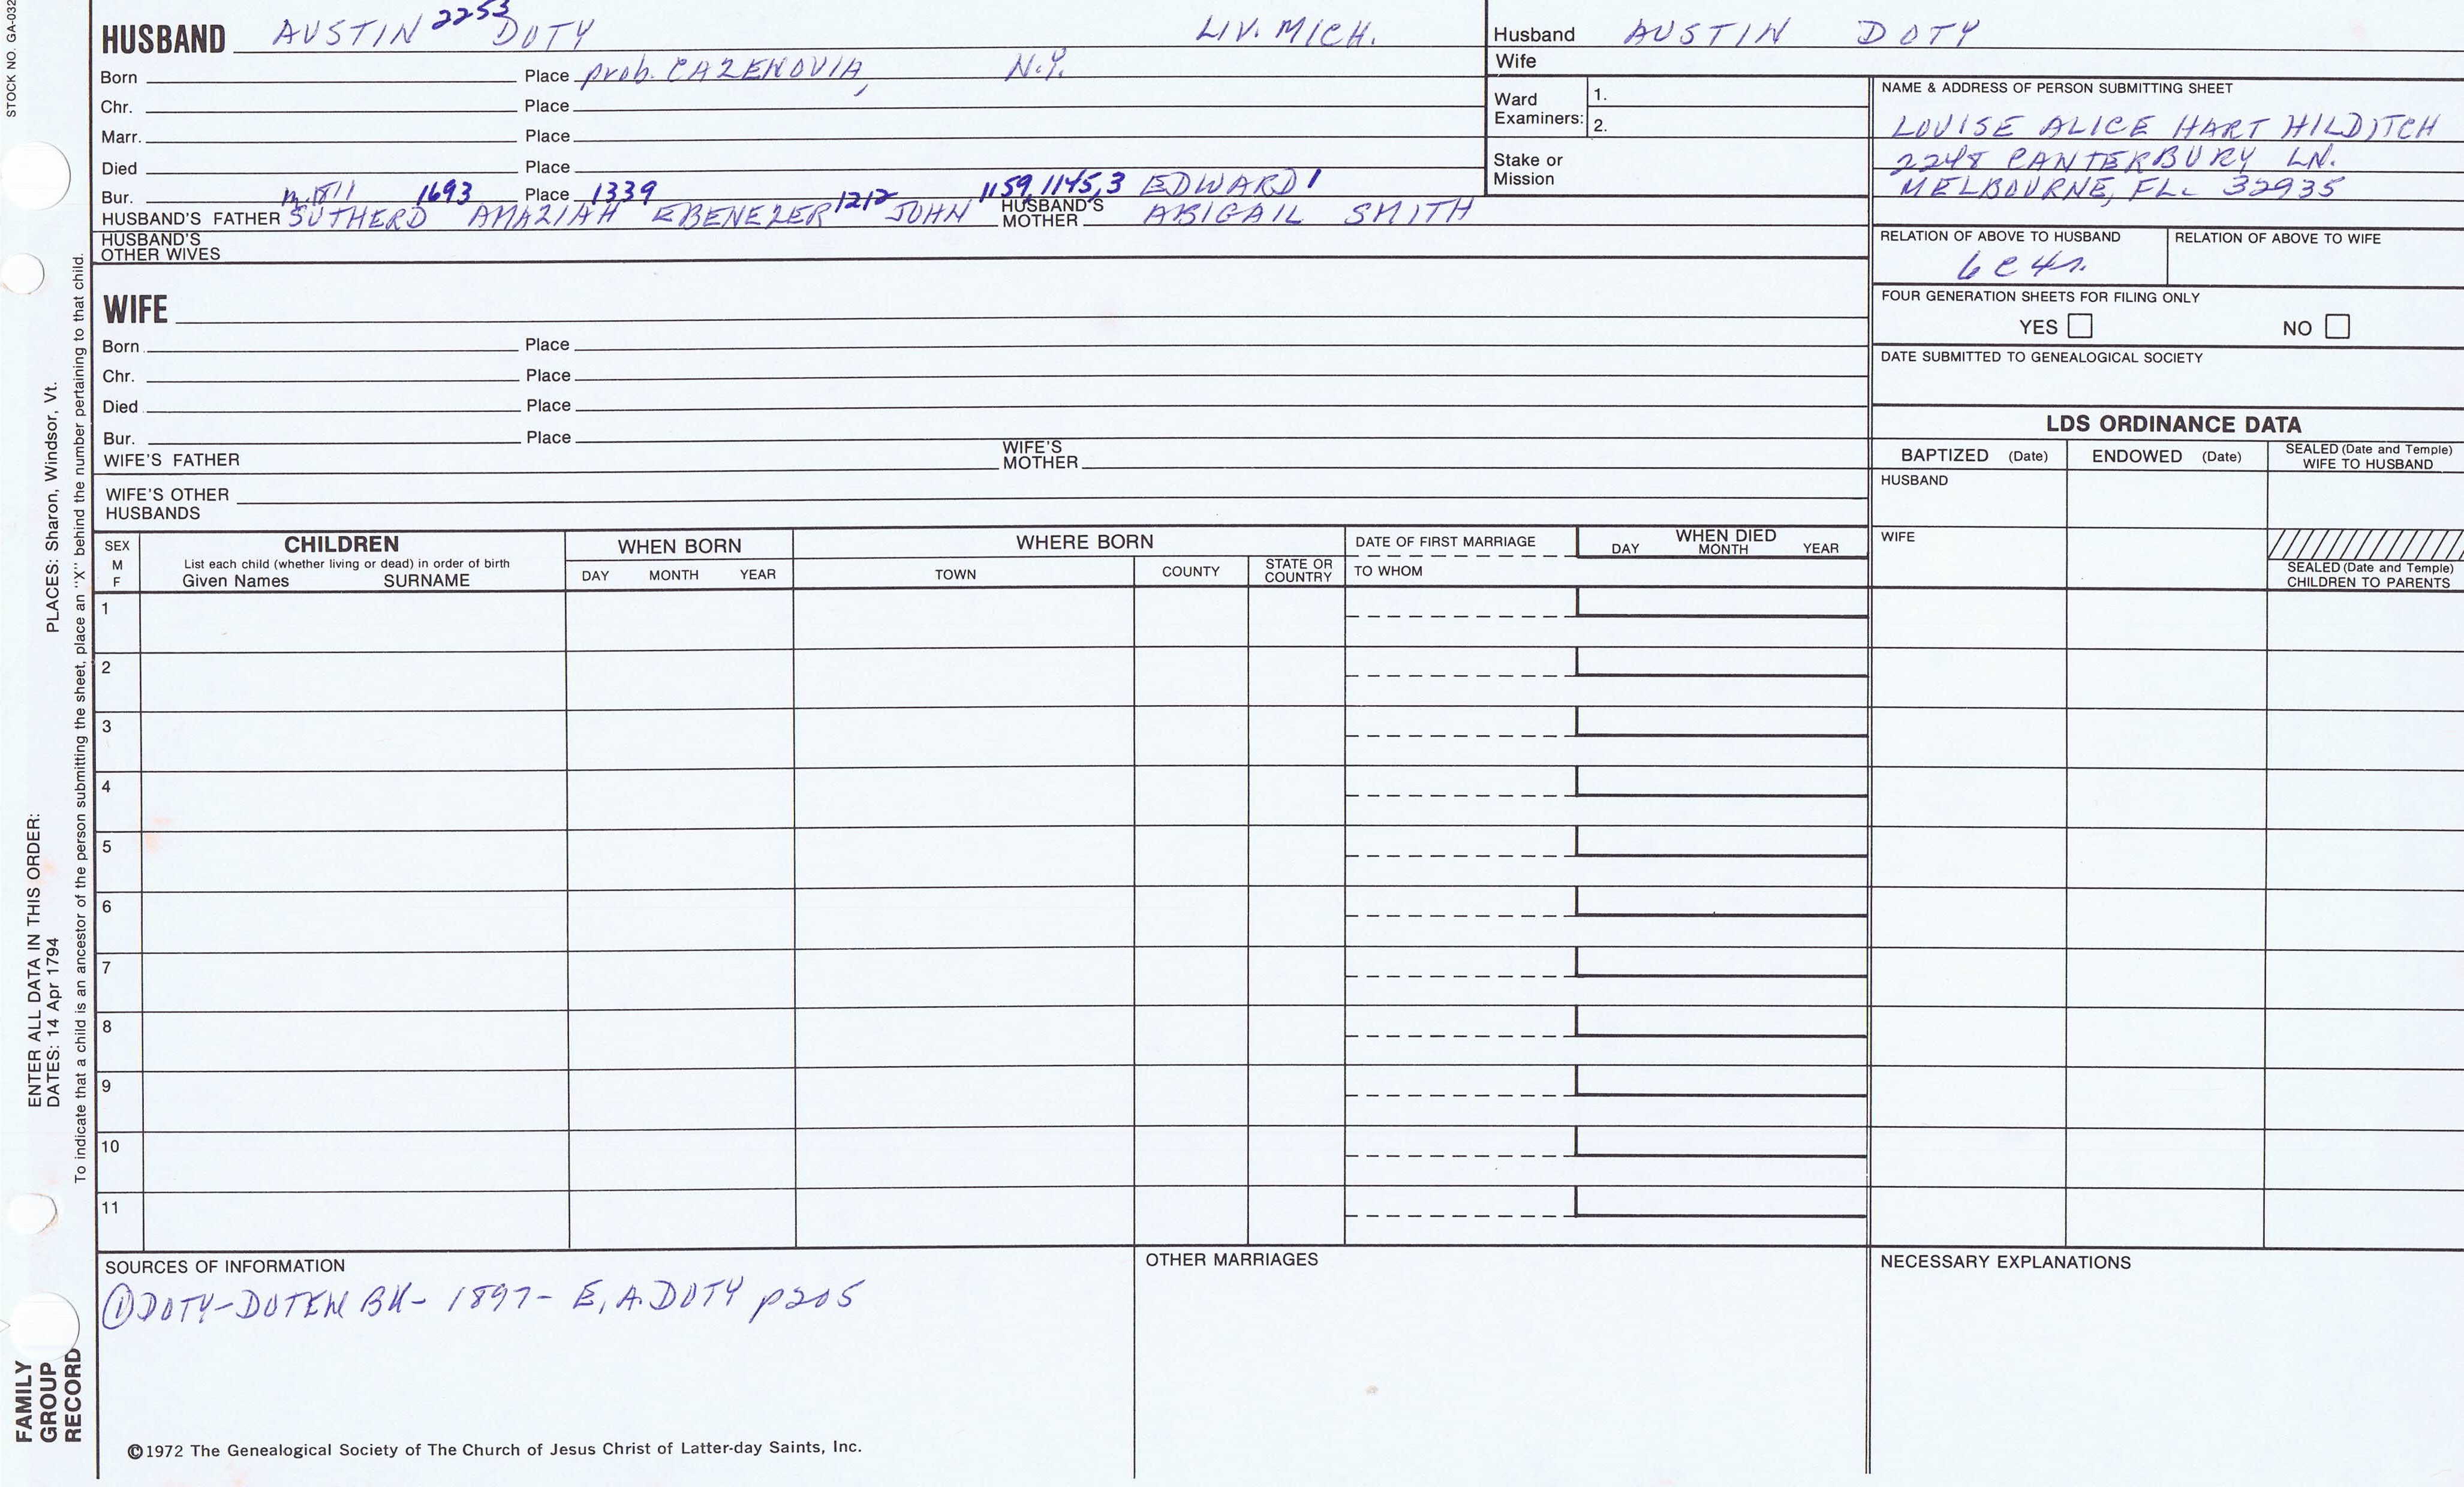 STOCK NO. GA-032
HUSBAND AUSTIN 2253 DOTY LIV. MICH.
Born Place prob. CAZENOVIA, N.Y.
Chr. Place
Marr. Place
Died Place
Bur. Place
m. 1811 1693 1339 1212 1159, 1145, 3 EDWARD 1
HUSBAND'S FATHER SUTHERD AMAZIAH EBENEZER JOHN HUSBAND'S MOTHER ABIGAIL SMITH
HUSBAND'S
OTHER WIVES
WIFE
Born Place
Chr. Place
Died Place
Bur. Place
WIFE'S FATHER WIFE'S MOTHER
WIFE'S OTHER
HUSBANDS
Husband AUSTIN DOTY
Wife
Ward Examiners: 1.
2.
Stake or
Mission
NAME & ADDRESS OF PERSON SUBMITTING SHEET
LOUISE ALICE HART HILDITCH
2248 CANTERBURY LN.
MELBOURNE, FL. 32935
RELATION OF ABOVE TO HUSBAND RELATION OF ABOVE TO WIFE
6C4r.
FOUR GENERATION SHEETS FOR FILING ONLY
YES NO
DATE SUBMITTED TO GENEALOGICAL SOCIETY
LDS ORDINANCE DATA
BAPTIZED (Date) ENDOWED (Date) SEALED (Date and Temple)
WIFE TO HUSBAND
HUSBAND
WIFE
SEALED (Date and Temple)
CHILDREN TO PARENTS
SEX
M
F
CHILDREN
List each child (whether living or dead) in order of birth
Given Names SURNAME
WHEN BORN
DAY MONTH YEAR
WHERE BORN
TOWN COUNTY STATE OR COUNTRY
DATE OF FIRST MARRIAGE
TO WHOM
WHEN DIED
DAY MONTH YEAR
1
2
3
4
5
6
7
8
9
10
11
SOURCES OF INFORMATION
① DOTY-DOTEN BK- 1897- E.A. DOTY p205
OTHER MARRIAGES
NECESSARY EXPLANATIONS
©1972 The Genealogical Society of The Church of Jesus Christ of Latter-day Saints, Inc.
FAMILY
GROUP
RECORD
ENTER ALL DATA IN THIS ORDER:
DATES: 14 Apr 1794 PLACES: Sharon, Windsor, Vt.
To indicate that a child is an ancestor of the person submitting the sheet, place an "X" behind the number pertaining to that child.